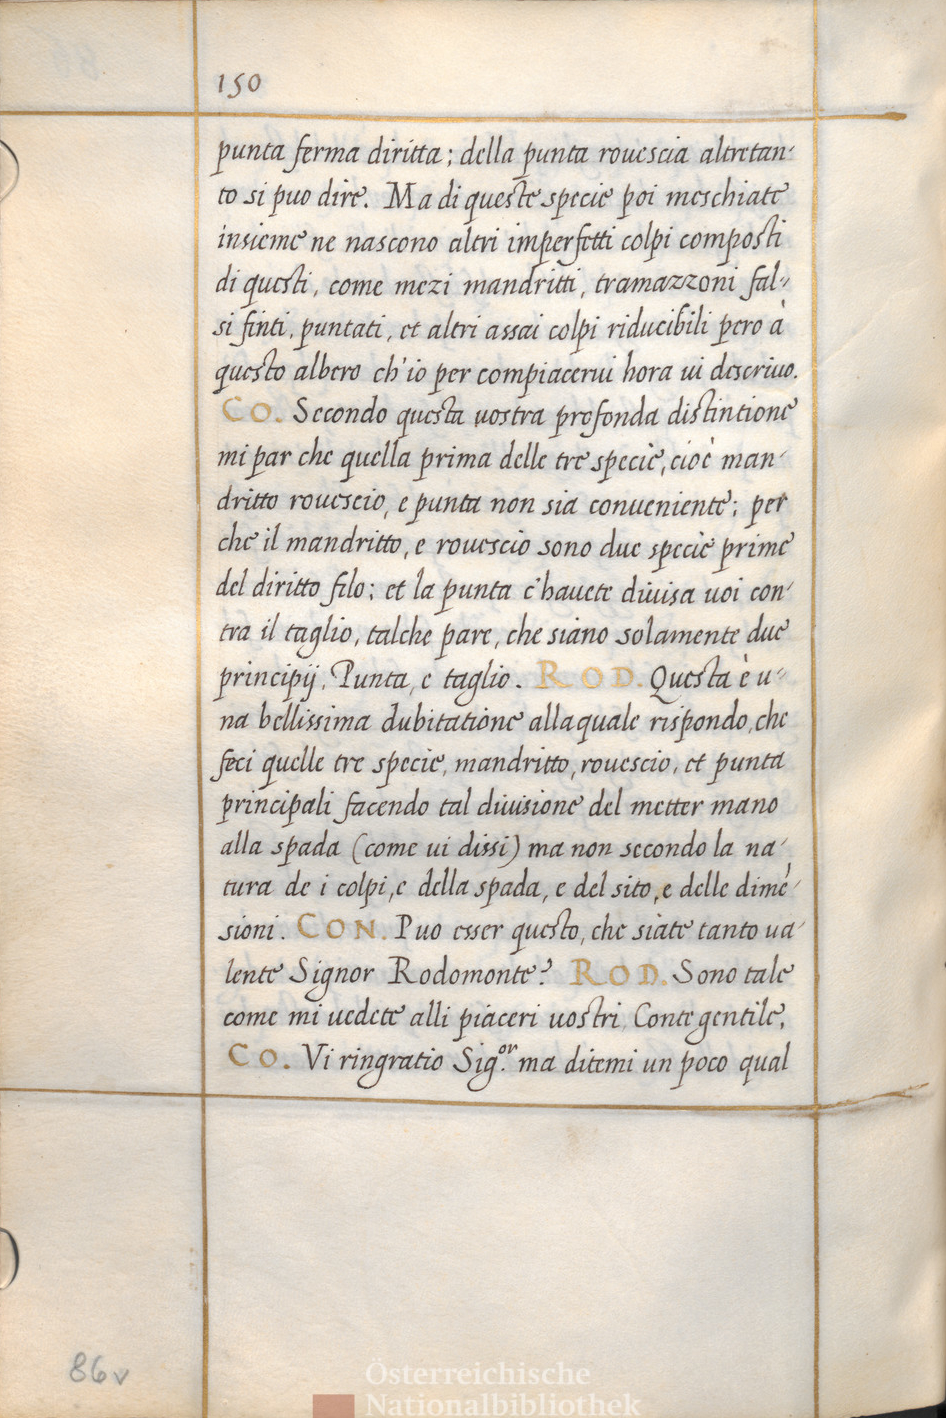 150
punta ferma diritta; della punta rouescia altretan-
to si puo dire. Ma di queste specie poi meschiate
insieme ne nascono altri imperfetti colpi composti
di questi, come mezi mandritti, tramazzoni fal-
si finti, puntati, et altri assai colpi riducibili pero à
questo albero ch'io per compiacerui hora ui descriuo.
CO. Secondo questa uostra profonda distintione
mi par che quella prima delle tre specie, cioè man-
dritto rouescio, e punta non sia conueniente; per
che il mandritto, e rouescio sono due specie prime
del diritto filo; et la punta c'hauete diuisa uoi con-
tra il taglio, talche pare, che siano solamente due
principij, Punta, e taglio. ROD. Questa è u-
na bellissima dubitatione alla quale rispondo, che
feci quelle tre specie, mandritto, rouescio, et punta
principali facendo tal diuisione del metter mano
alla spada (come ui dissi) ma non secondo la na-
tura de i colpi, e della spada, e del sito, e delle dimé-
sioni. CON. Puo esser questo, che siate tanto ua-
lente Signor Rodomonte? ROD. Sono tale
come mi uedete alli piaceri uostri Conte gentile,
CO. Vi ringratio Sig.or ma ditemi un poco qual
86v
Österreichische
Nationalbibliothek